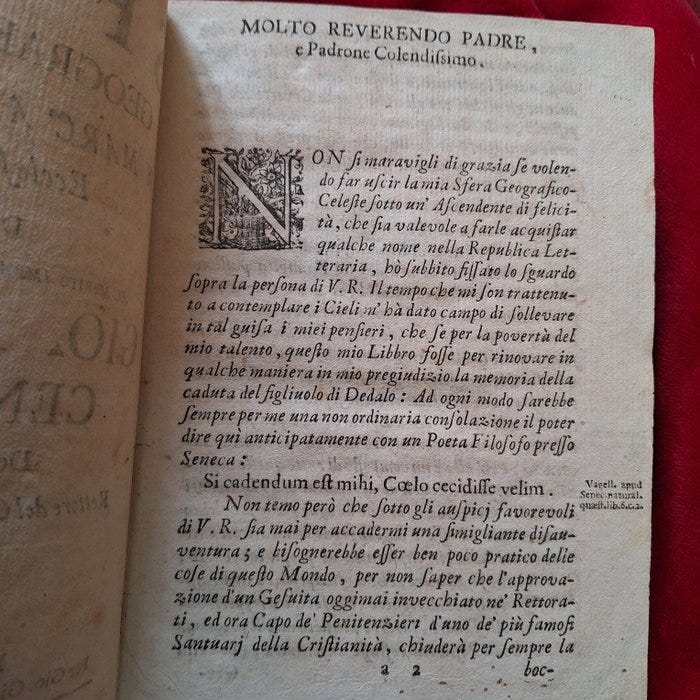 MOLTO REVERENDO PADRE,
e Padrone Colendiſsimo.
NON ſi maravigli di grazia ſe volen-
do far uſcir la mia Sfera Geografico-
Celeſte ſotto un' Aſcendente di felici-
tà, che ſia valevole a farle acquiſtar
qualche nome nella Republica Let-
teraria, hò ſubbito fiſſato lo ſguardo
ſopra la perſona di V. R. Il tempo che mi ſon trattenu-
to a contemplare i Cieli m' hà dato campo di ſollevare
in tal guiſa i miei penſieri, che ſe per la povertà del
mio talento, queſto mio Libbro foſſe per rinovare in
qualche maniera in mio pregiudizio la memoria della
caduta del figliuolo di Dedalo: Ad ogni modo ſarebbe
ſempre per me una non ordinaria conſolazione il poter
dire quì anticipatamente con un Poeta Filoſofo preſſo
Seneca:
Si cadendum est mihi, Cœlo cecidiſſe velim.
Vagell. apud
Senec. natural.
quæſt. lib. 6. c. 2.
Non temo però che ſotto gli auſpicj favorevoli
di V. R. ſia mai per accadermi una ſimigliante diſau-
ventura; e biſognerebbe eſſer ben poco pratico delle
coſe di queſto Mondo, per non ſaper che l'approva-
zione d'un Geſuita oggimai invecchiato ne' Rettora-
ti, ed ora Capo de' Penitenzieri d'uno de' più famoſi
Santuarj della Criſtianità, chiuderà per ſempre la
a 2 boc-
GEOGRAF
MARC' A
Eccleſ
GIO.
CEN
Rettore del C